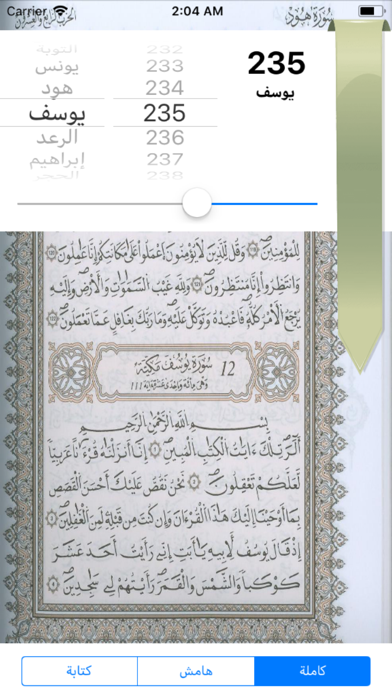 Carrier
2:04 AM
سورة هود
الحزب
التوبة
232
يونس
233
هود
234
يوسف
235
الرعد
236
إبراهيم
237
الحجر
238
235
يوسف
لِلْمُؤْمِنِينَ وَقُل لِّلَّذِينَ لَا يُؤْمِنُونَ اعْمَلُوا عَلَىٰ مَكَانَتِكُمْ إِنَّا عَامِلُونَ
وَانتَظِرُوا إِنَّا مُنتَظِرُونَ وَلِلَّهِ غَيْبُ السَّمَاوَاتِ وَالْأَرْضِ وَإِلَيْهِ
يَرْجِعُ الْأَمْرُ كُلُّهُ فَاعْبُدْهُ وَتَوَكَّلْ عَلَيْهِ وَمَا رَبُّكَ بِغَافِلٍ عَمَّا تَعْمَلُونَ
12 سُورَةُ يُوسُفَ مَكِّيَّة
111
بِسْمِ اللَّهِ الرَّحْمَٰنِ الرَّحِيمِ
الٓر تِلْكَ ءَايَٰتُ الْكِتَٰبِ الْمُبِينِ إِنَّا أَنزَلْنَٰهُ قُرْءَٰنًا عَرَبِيًّا
لَّعَلَّكُمْ تَعْقِلُونَ نَحْنُ نَقُصُّ عَلَيْكَ أَحْسَنَ الْقَصَصِ
بِمَا أَوْحَيْنَا إِلَيْكَ هَٰذَا الْقُرْءَانَ وَإِن كُنتَ مِن قَبْلِهِ لَمِنَ الْغَٰفِلِينَ
إِذْ قَالَ يُوسُفُ لِأَبِيهِ يَٰأَبَتِ إِنِّي رَأَيْتُ أَحَدَ عَشَرَ
كَوْكَبًا وَالشَّمْسَ وَالْقَمَرَ رَأَيْتُهُمْ لِي سَٰجِدِينَ
كاملة
هامش
كتابة